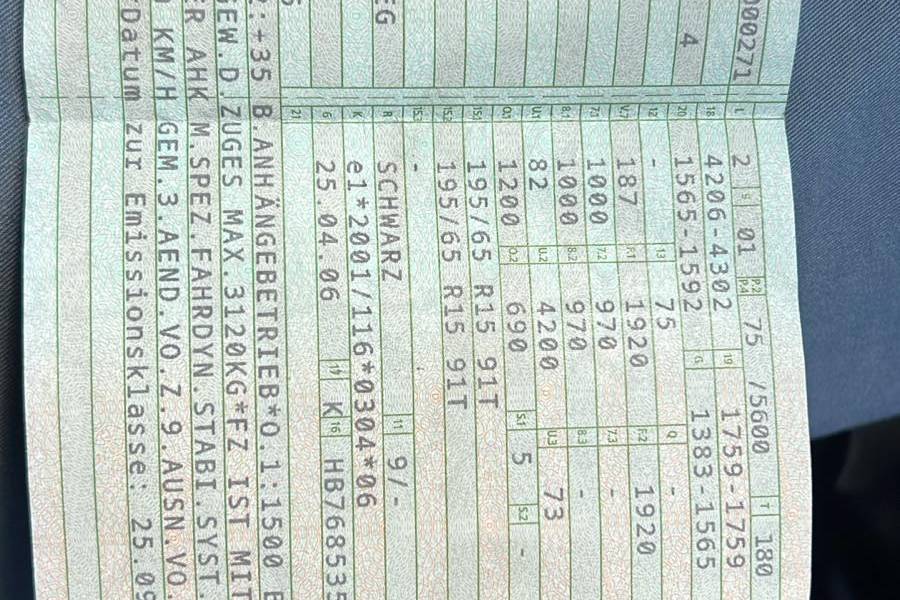 00271 L 2 9 01 P.2 P.4 75 /5600 T 180
18 4206-4302 19 1759-1759
4 20 1565-1592 G 1383-1565
12 - 13 75 Q -
V.7 187 F.1 1920 F.2 1920
7.1 1000 7.2 970 7.3 -
8.1 1000 8.2 970 8.3 -
U.1 82 U.2 4200 U.3 73
O.1 1200 O.2 690 S.1 5 S.2 -
15.1 195/65 R15 91T
15.2 195/65 R15 91T
15.3 -
EG R SCHWARZ 11 9/-
K e1*2001/116*0304*06
6 25.04.06 17 K 16 HB768535
21
:+35 B.ANHÄNGEBETRIEB*O.1:1500 B
GEW.D.ZUGES MAX.3120KG*FZ IST MIT
ER AHK M.SPEZ.FAHRDYN.STABI.SYST.
KM/H GEM.3.AEND.VO.Z.9.AUSN.VO.
Datum zur Emissionsklasse: 25.09